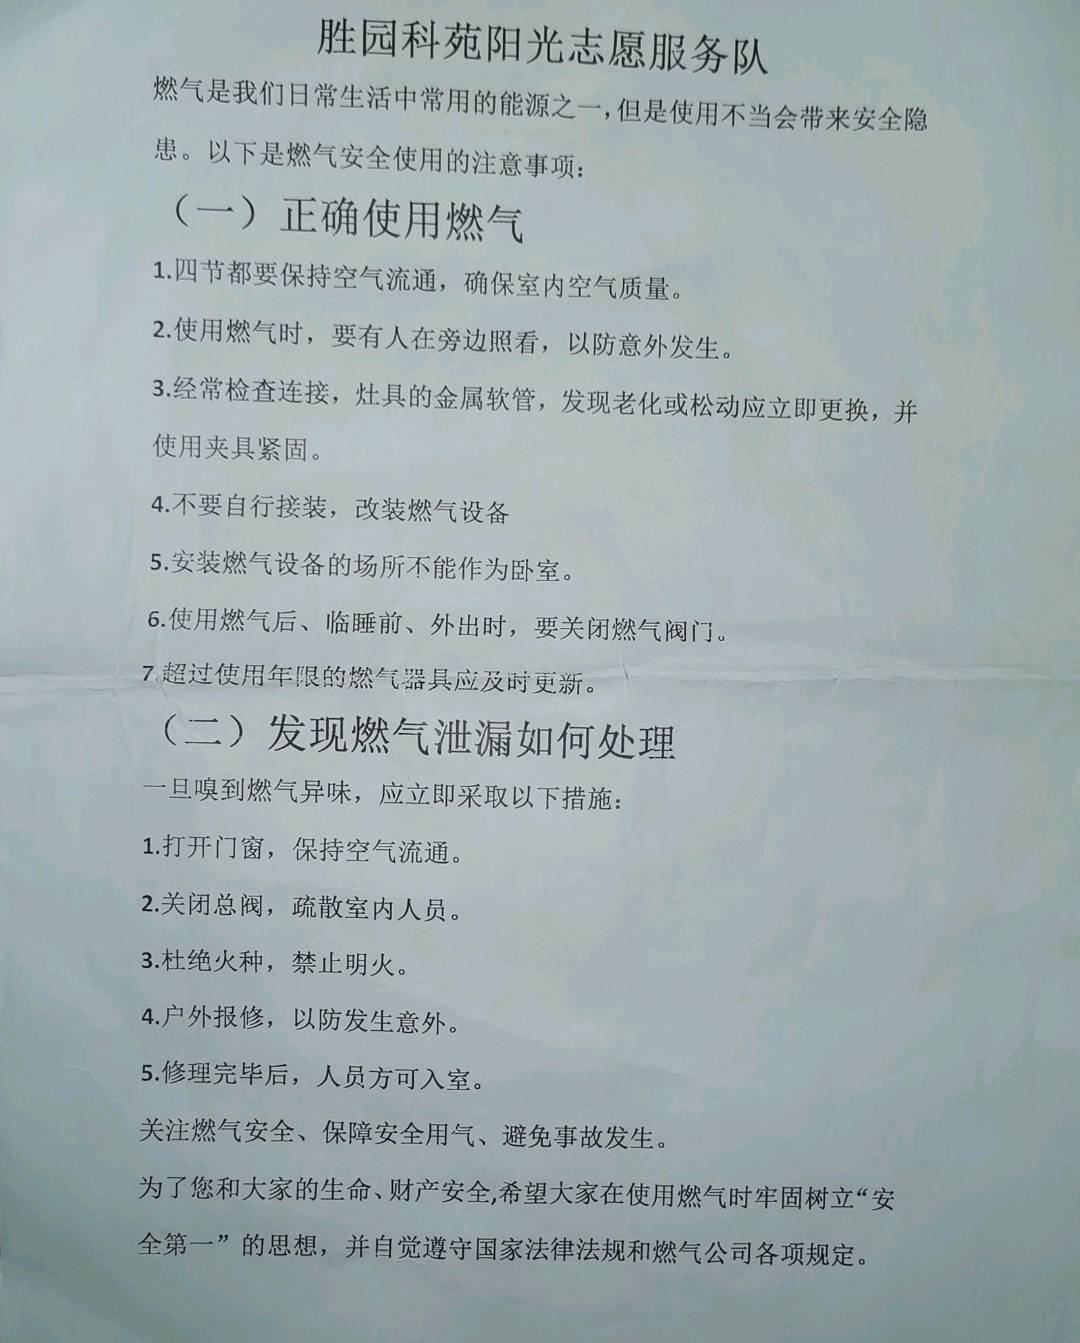 胜园科苑阳光志愿服务队
燃气是我们日常生活中常用的能源之一,但是使用不当会带来安全隐
患。以下是燃气安全使用的注意事项:
（一）正确使用燃气
1.四节都要保持空气流通，确保室内空气质量。
2.使用燃气时，要有人在旁边照看，以防意外发生。
3.经常检查连接，灶具的金属软管，发现老化或松动应立即更换，并
使用夹具紧固。
4.不要自行接装，改装燃气设备
5.安装燃气设备的场所不能作为卧室。
6.使用燃气后、临睡前、外出时，要关闭燃气阀门。
7.超过使用年限的燃气器具应及时更新。
（二）发现燃气泄漏如何处理
一旦嗅到燃气异味，应立即采取以下措施:
1.打开门窗，保持空气流通。
2.关闭总阀，疏散室内人员。
3.杜绝火种，禁止明火。
4.户外报修，以防发生意外。
5.修理完毕后，人员方可入室。
关注燃气安全、保障安全用气、避免事故发生。
为了您和大家的生命、财产安全,希望大家在使用燃气时牢固树立“安
全第一”的思想，并自觉遵守国家法律法规和燃气公司各项规定。